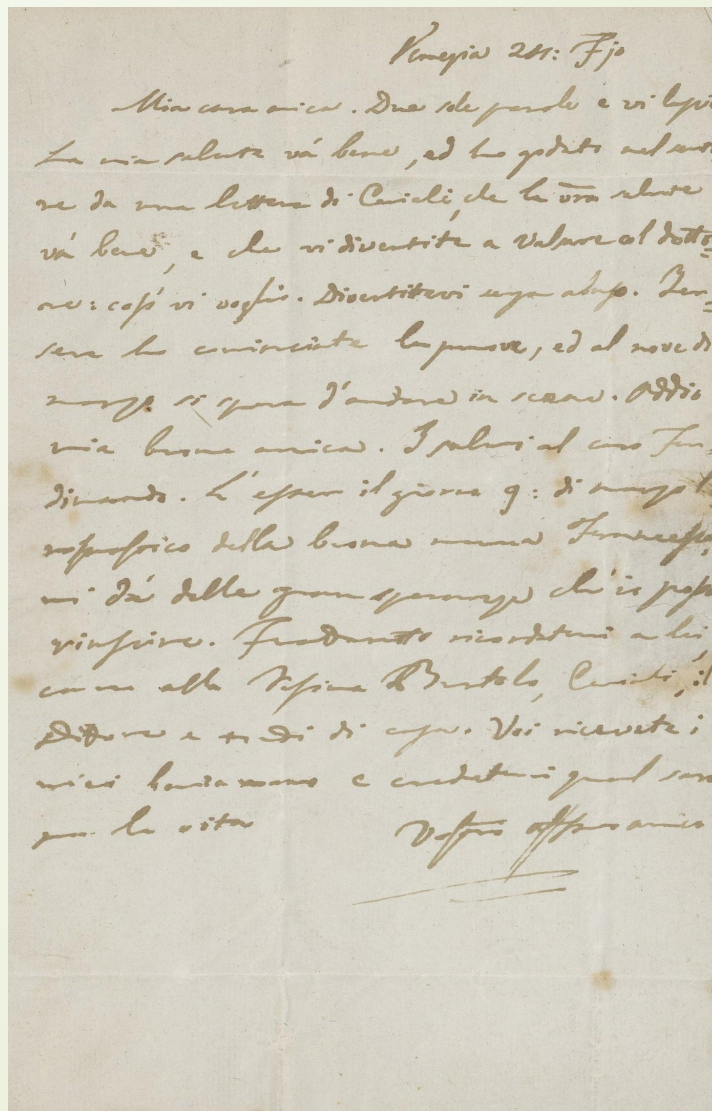 Venezia 24: F.jo
Mia cara amica. Due sole parole e vi lascio
La mia salute và bene, ed ho goduto nel senti-
re da una lettera di che la vra salute
và bene, e che vi divertite a valsare col dotto=
re: così vi voglio. Divertitevi senza abuso. Jer=
sera ho cominciato le prove, ed al nove di
marzo si spera d'andare in scena. Addio
mia buona amica. I saluti al caro Fer-
dinando. L'esser il giorno 9: di marzo l'o
nomastico della buona mamma Francesca,
mi dà delle gran speranze ch'io possa
riuscire. Frattanto ricordatemi a lei
come alla Bartolo, il
Dottore e tutti di casa. Voi ricevete i
miei baciamano e credetemi qual sarò
per la vita
Vostro affmo amico